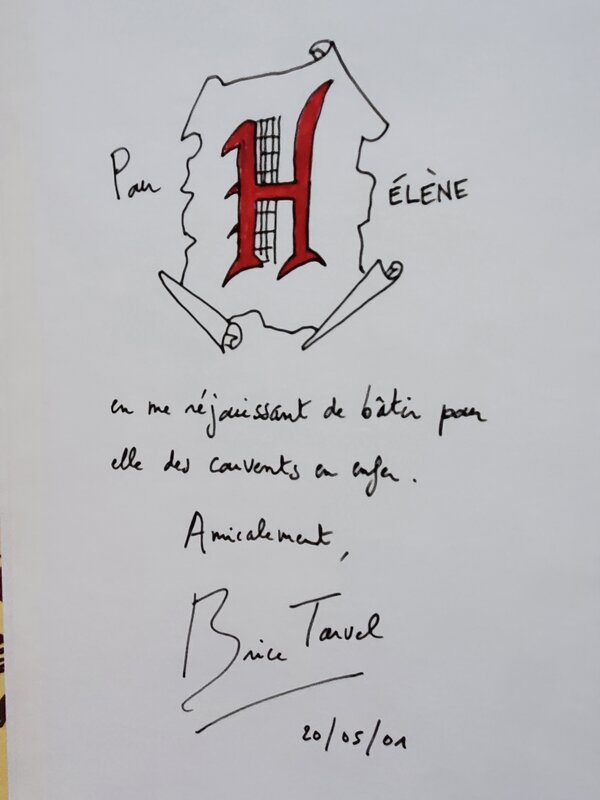 Pour HÉLÈNE
en me réjouissant de bâtir pour
elle des couvents en enfer.
Amicalement,
Brice Tarvel
20/05/01